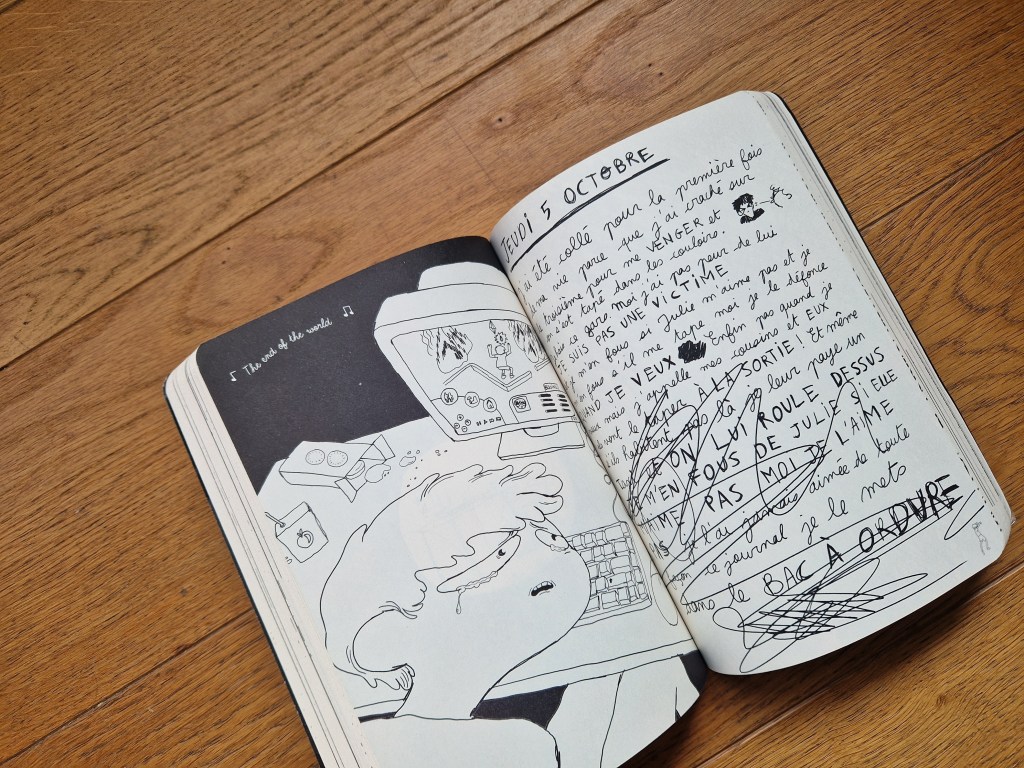 ♪ The end of the world ♫
JEUDI 5 OCTOBRE
ai été collé pour la première fois
ma vie parce que j'ai craché sur
troisième pour me VENGER et
s'est tapé dans les couloirs.
ce gars moi j'ai pas peur de lui
SUIS PAS UNE VICTIME
m'en fous si Julie m'aime pas et je
peur s'il me tape moi je le défonce
AND JE VEUX Enfin pas quand je
mais j'appelle mes cousins et EUX
vont le À LA SORTIE! Et même
ils là je leur paye un
ON LUI ROULE DESSUS
M'EN FOUS DE JULIE SI ELLE
AIME PAS MOI DE L'AIME
l'ai jamais aimée de toute
journal je le mets
dans le BAC À ORDURE